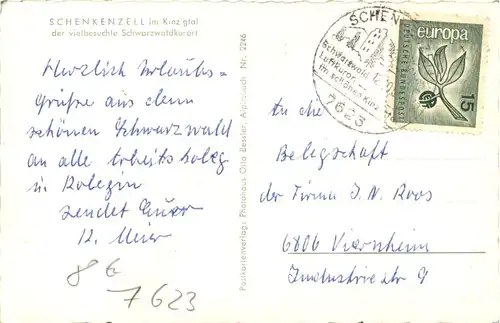 SCHENKENZELL im Kinzigtal
der vielbesuchte Schwarzwaldkurort
Herzlich Urlaubs-
Grüße aus dem
schönen Schwarzwald
an alle Arbeitskoleg
in Kolegin
sendet Euer
H. Meier
86
7623
Postkartenverlag: Photohaus Otto Bessler, Alpirsbach Nr. 2246
SCHEN
Schwarzwald
Luftkurort
im schönen Kinz
7623
europa
DEUTSCHE BUNDESPOST
15
An die
Belegschaft
der Firma J. N. Roos
6806 Viernheim
Industriestr 9